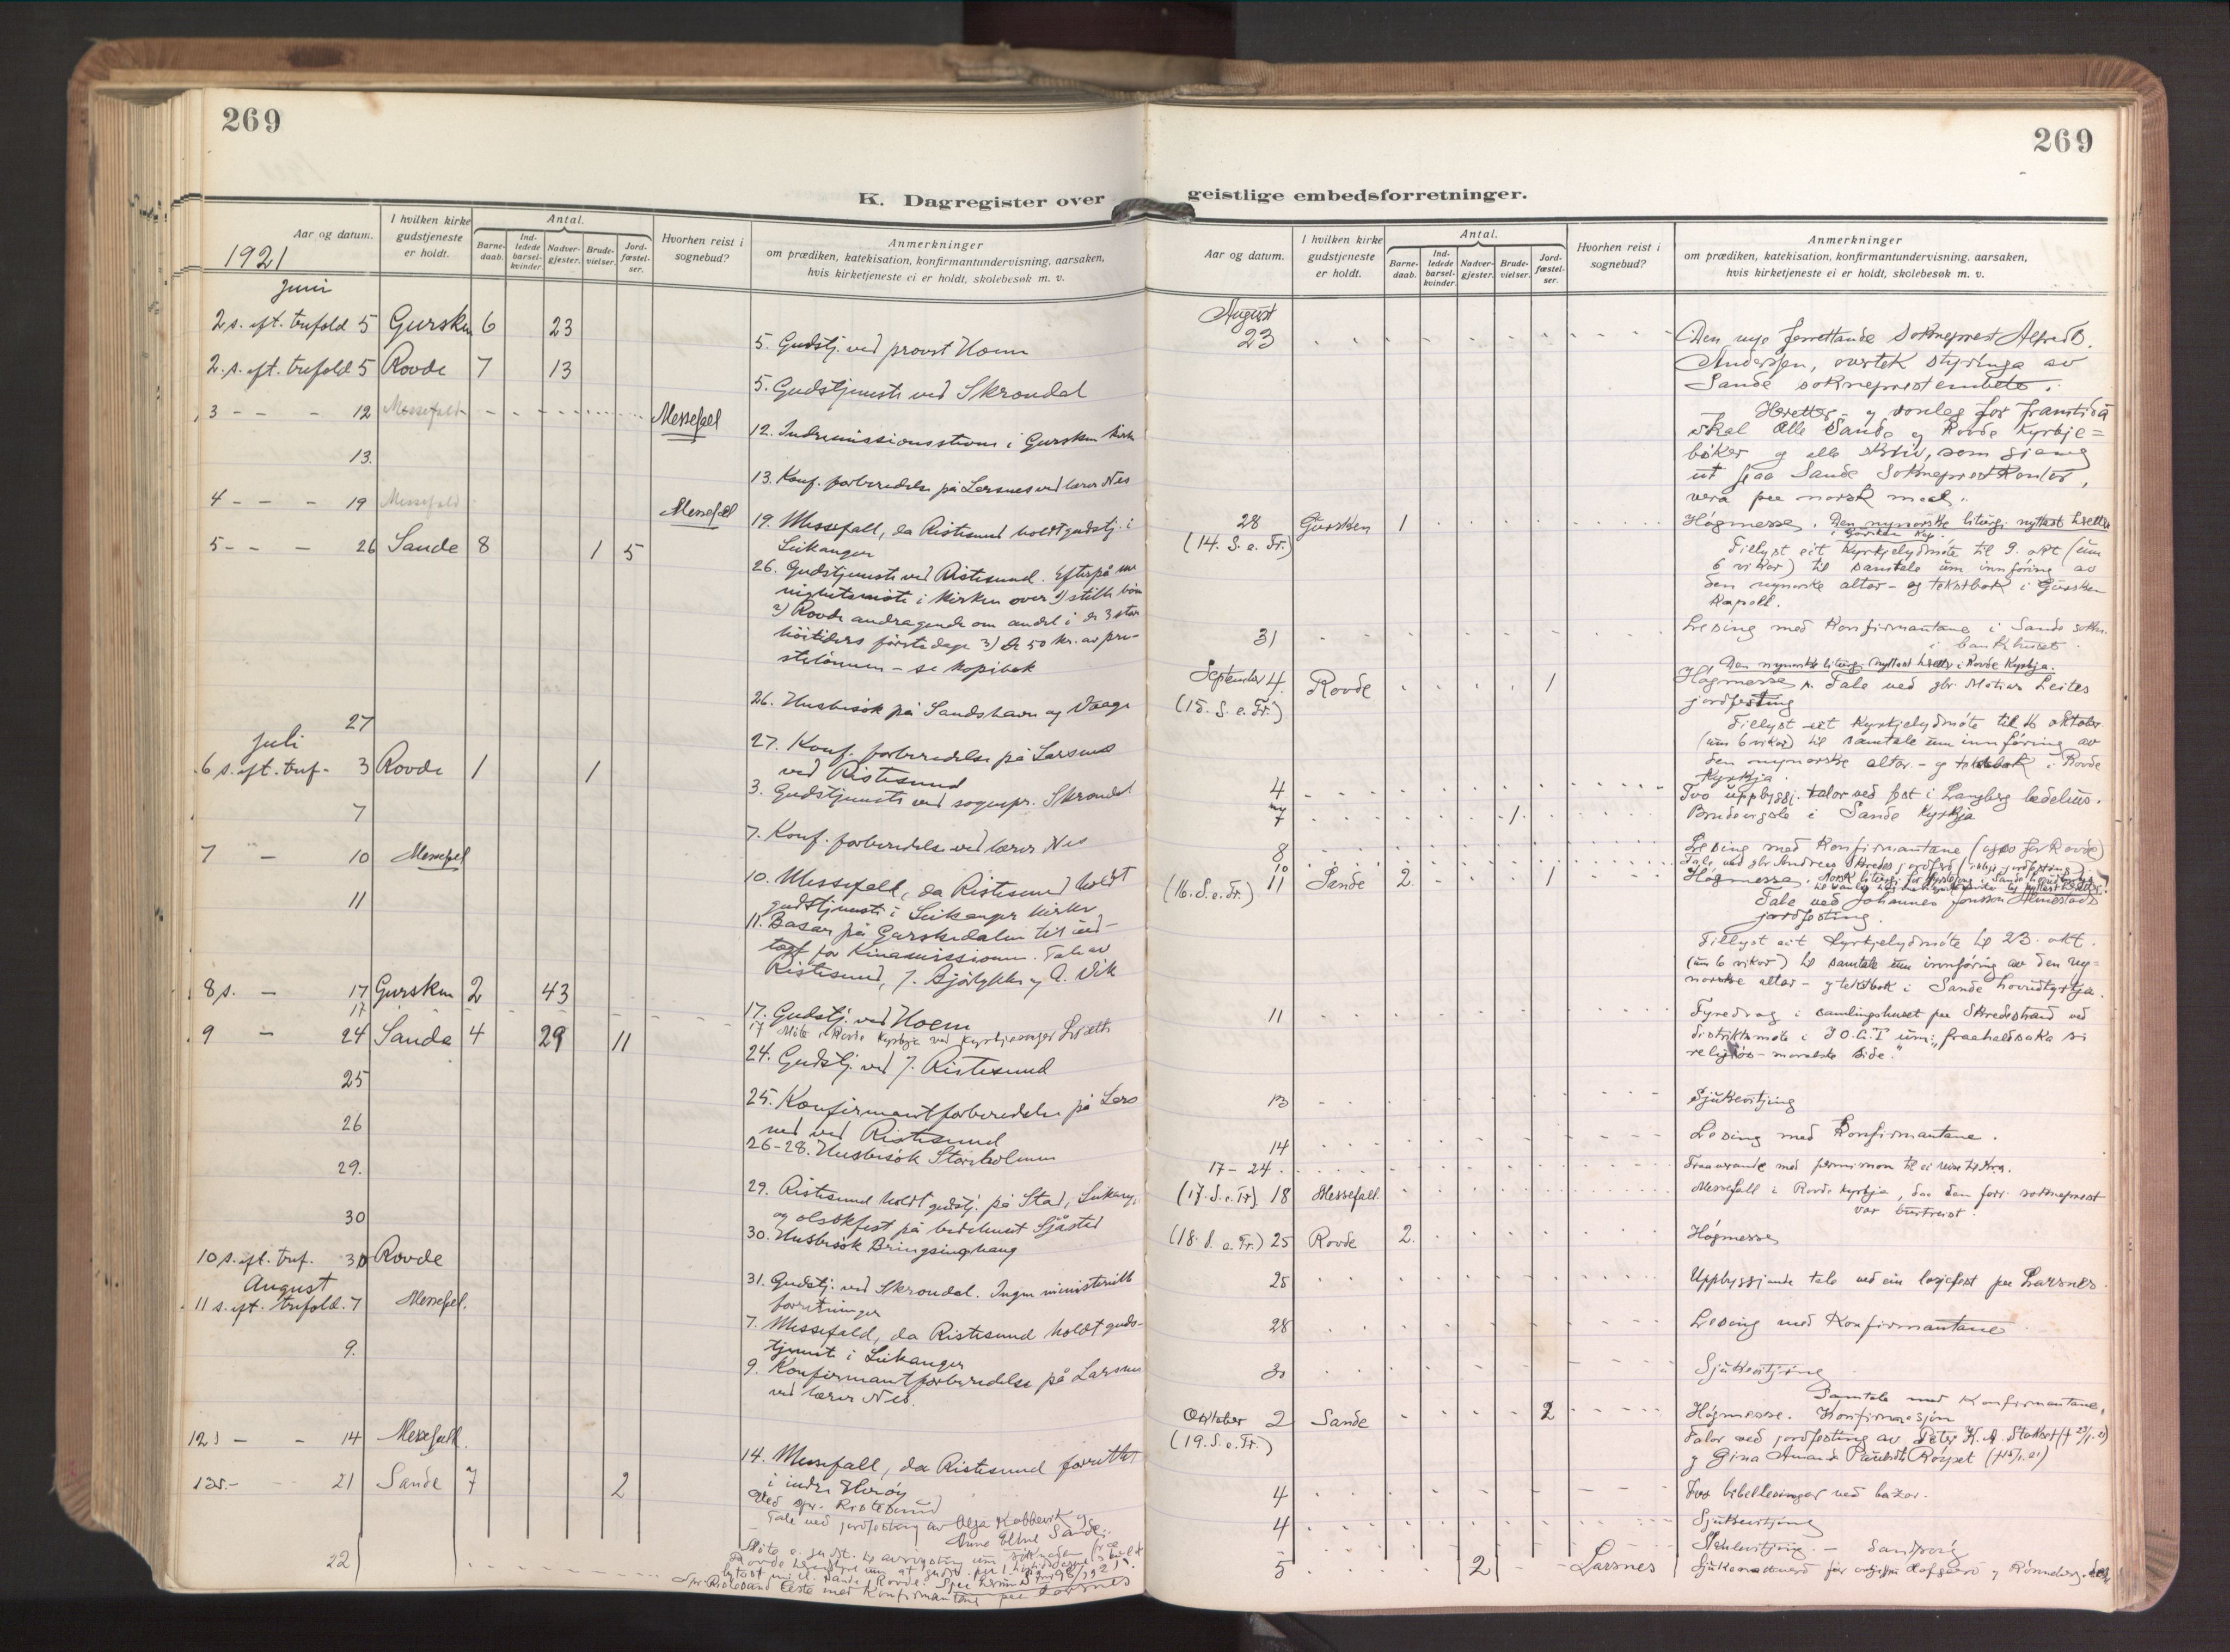 269
269
K. Dagregister over geistlige embedsforretninger.
Aar og datum.
I hvilken kirke gudstjeneste er holdt.
Antal.
Barne-daab.
Ind-ledede barsel-kvinder.
Nadver-gjester.
Brude-vielser.
Jord-fæstel-ser.
Hvorhen reist i sognebud?
Anmerkninger
om prædiken, katekisation, konfirmantundervisning, aarsaken,
hvis kirketjeneste ei er holdt, skolebesøk m. v.
1921
Juni
2 s. eft. trefold 5 Gursken 6 23
5. Gudstj. ved provst Hoem
2. s. eft. trefold 5 Rovde 7 13
5. Gudstjeneste ved Skrondal
3 - - - 12 Messefald Messefal
12. Indremissionsstevne i Gursken kirke
13.
13. Konf. forberedelse på Larsnes ved lærer Nes
4 - - - 19 Messefald Messefal
19. Messefall, da Ristesund holdt gudstj. i
Leikanger
5 - - - 26 Sande 8 1 5
26. Gudstjeneste ved Ristesund. Efterpå me-
nighetsmøte i kirken over 1) stille bön
2) Rovde andragende om andel i de 3 store
höitiders förstedage 3) De 50 kr. av pre-
stelönnen - se kopibok
26. Husbesök på Sandshavn og Vaage
27
27. Konf. forberedelse på Larsnes
ved Ristesund
Juli
6 s. eft. tref. 3 Rovde 1 1
3. Gudstjeneste ved sognepr. Skrondal
7
7. Konf. forberedelse ved lærer Nes
7 - 10 Messefal
10. Messefall, da Ristesund holdt
gudstjeneste i Leikanger kirke
11
11. Basar på Gurskedalen til ind-
tægt for Kinamissionen. Tale av
Ristesund, J. Björlykke og A. Vik
8 s. - 17 Gursken 2 43
17. Gudstj. ved Hoem
17
17 Möte i Rovde Kyrkja ved Kyrkjesongar
9 - 24 Sande 4 29 11
24. Gudstj. ved J. Ristesund
25
25. Konfirmantforberedelse på Lars
nes ved Ristesund
26
26-28. Husbesök Storholmen
29.
29. Ristesund holdt gudstj. på Stad, Leikang.
og olsokfest på bedehuset Sjåsted
30
30. Husbesök Bringsinghaug
10 s. eft. tref. 30 Rovde
31. Gudstj. ved Skrondal. Ingen ministerielle
forretninger
August
11 s. eft. trefold. 7 Messefal.
7. Messefald, da Ristesund holdt guds-
tjeneste i Leikanger
9.
9. Konfirmantforberedelse på Larsnes
ved lærer Nes.
12 s - - 14 Messefall.
14. Messefall, da Ristesund forrettet
i indre Heröy
13 s. - - 21 Sande 7 2
Ved spr. Ristesund
Tale ved jordfesting av Olga Kobbevik og
Anne Eline Sande.
22
Spr. Ristesund leste med Konfirmantane paa Larsnes
Aar og datum.
I hvilken kirke gudstjeneste er holdt.
Antal.
Barne-daab.
Ind-ledede barsel-kvinder.
Nadver-gjester.
Brude-vielser.
Jord-fæstel-ser.
Hvorhen reist i sognebud?
Anmerkninger
om prædiken, katekisation, konfirmantundervisning, aarsaken,
hvis kirketjeneste ei er holdt, skolebesøk m. v.
August
23
Den nye forrettande Sokneprest Alfred B.
Andersen, overtek styringa av
Sande sokneprestembete.
Heretter og vonleg for framtida
skal alle Sande og Rovde Kyrkje=
bøker og alle skriv, som gjeng
ut fraa Sande Sokneprestkontor,
vera paa norsk maal.
28 (14. S. e. Tr.) Gursken 1
Høgmessa. Den nynorske liturgi nyttast
i Gursken Kyr.
Tillyst eit Kyrkjelydmøte til 9. okt (um
6 vikor) til samtale um innføring av
den nynorske altar- og tekstbok i Gursken
Kapell.
31
Lesing med Konfirmantane i Sande sokn.
i bankhuset.
September 4. (15. S. e. Tr.) Rovde 1
Den nynorske liturgi nyttast i Rovde Kyrkja.
Høgmessa. Tale ved gbr. Matias Leites
jordfesting
Tillyst eit Kyrkjelydmøte til 16 oktober
(um 6 vikor) til samtale um innføring av
den nynorske altar- og tekstbok i Rovde
Kyrkja.
4
Tvo uppbyggj. talor ved fest i bedehus.
7 1
Brudevigsle i Sande Kyrkja
8
Lesing med Konfirmantane (ogso for Rovde)
10
Tale ved gbr. Andreas jordferd
(16. S. e. Tr.) 11 Sande 2. 1
Høgmessa.
Tale ved Johannes Jonsson
jordfesting.
Tillyst eit Kyrkjelydmøte til 23. okt.
(um 6 vikor) til samtale um innføring av den ny=
norske altar- og tekstbok i Sande hovudkyrkja.
11
Fyredrag i samlingshuset paa Skredestrand ved
distriktsmøte i I.O.G.T um: "fraahaldssaka si
religiøs-moralske side."
13
Sjukevitjing
14
Lesing med Konfirmantane.
17-24.
Fraaverande med permisjon til ei reise til Kra.
(17. S. e. Tr.) 18 Messefall.
Messefall i Rovde Kyrkja, daa den forr. sokneprest
var burtreist.
(18. S. e. Tr.) 25 Rovde 2.
Høgmessa
25
Uppbyggjande tale ved ein losjefest paa Larsnes.
28
Lesing med Konfirmantane
30
Sjukevitjing
Oktober 2 (19. S. e. Tr.) Sande 2
Samtale med Konfirmantane.
Høgmesse. Konfirmasjon
Talor ved jordfesting av Peter K. A.
og Gina Amanda
4
Tvo bibellesingar ved basar.
4
Sjukevitjing
Skulevitjing. -
5 2 Larsnes